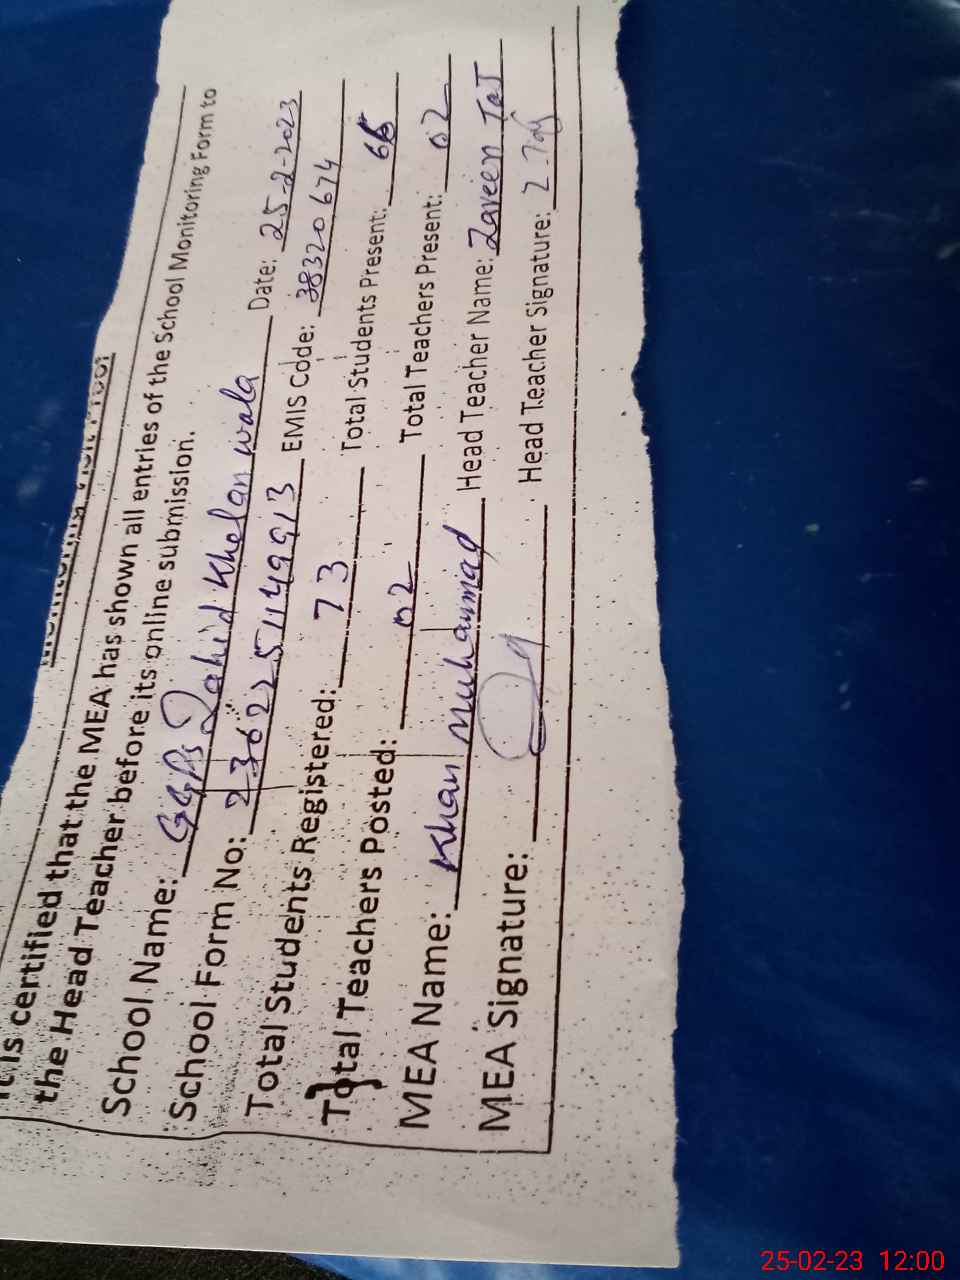 It is certified that the MEA has shown all entries of the School Monitoring Form to
the Head Teacher before its online submission.
School Name: GGPS Zahid Khelanwala Date: 25-2-2023
School Form No: 2362251149913 EMIS Code: 38320674
Total Students Registered: 73 Total Students Present: 66
Total Teachers Posted: 02 Total Teachers Present: 02
MEA Name: Khan Muhammad Head Teacher Name: Zareen Taj
MEA Signature: Head Teacher Signature: Z Taj
25-02-23 12:00